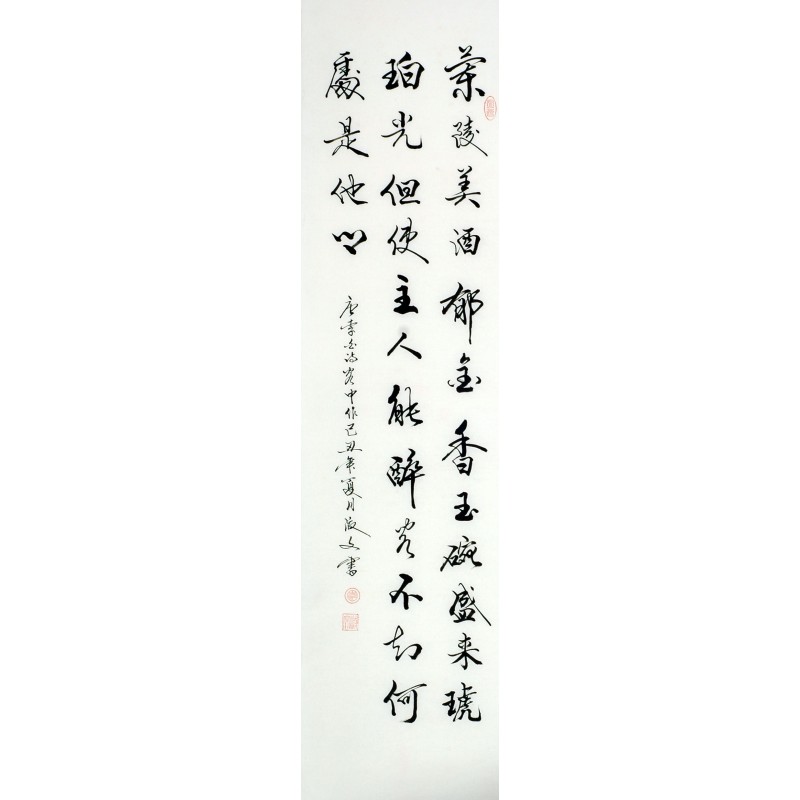 兰陵美酒郁金香玉碗盛来琥
珀光但使主人能醉客不知何
处是他乡
唐李白诗客中作己丑年夏月文书